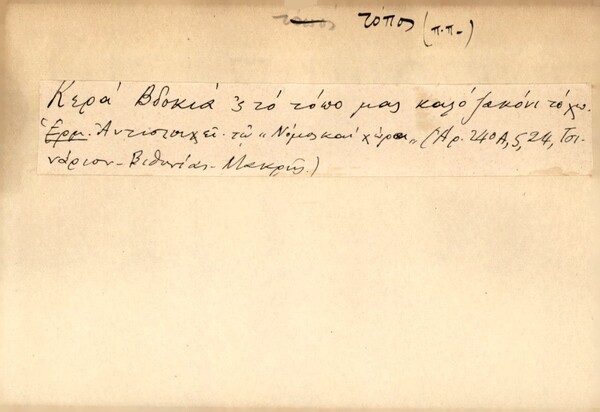 τόπος (π.π-)
Κερά Βδοκιά 'ς τό τόπο μας καλό ζακόνι τό χω.
Ἑρμ. Ἀντιστοιχεῖ τῷ „Νόμος καί χώρα„ (Ἀρ. 240Α, 5, 24, Τσι-
νάριον - Βιθυνίας - Μακρῆς.)